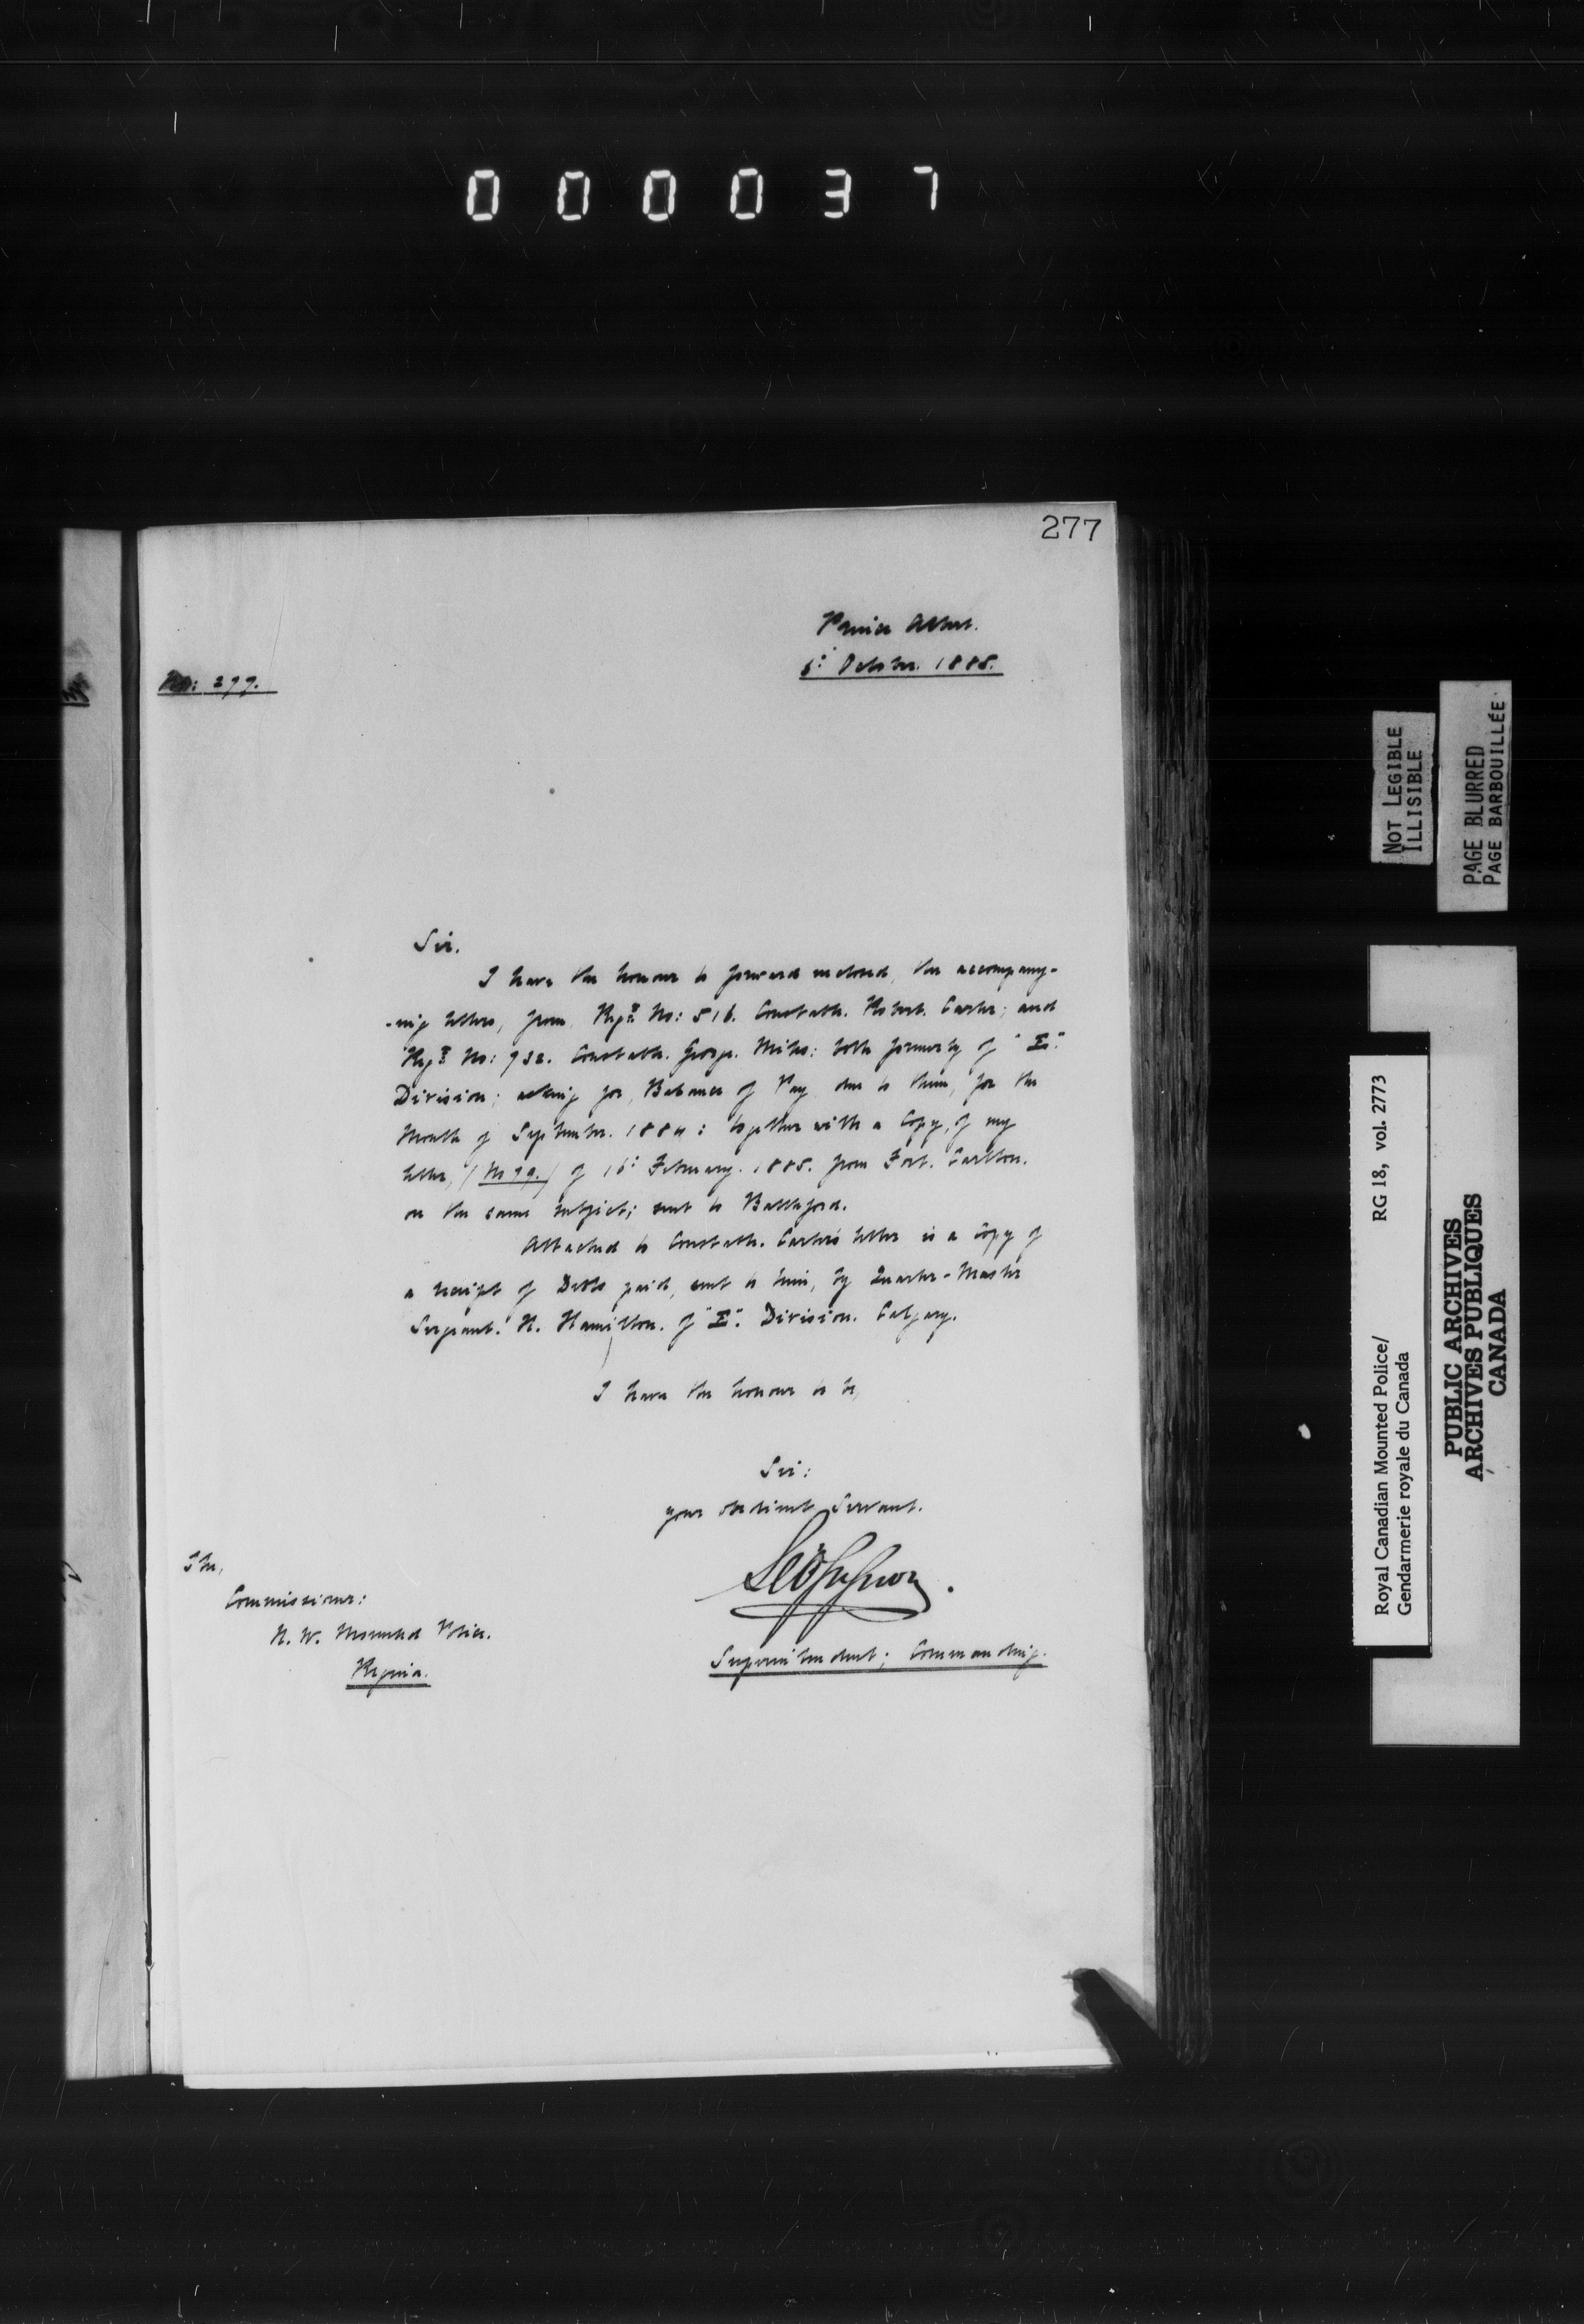 000037
277
Prince Albert.
6: October. 1885.
No: 277.
Sir.
I have the honour to forward enclosed, the accompany-
-ing letters, from, Regtl No: 516. Constable. Robert. Carter; and
Regtl No: 932. Constable. George. Miles: both formerly of "E".
Division; asking for, Balance of Pay due to them, for the
Month of September. 1884: together with a Copy, of my
letter, (No 79.) of 16: February. 1885. from Fort. Carlton.
on the same subject; sent to Battleford.
Attached to Constable. Carter's letter is a Copy of
a receipt of Debts paid, sent to him, by Quarter-Master
Sergeant. N. Hamilton. of "E". Division. Calgary.
I have the honour to be,
Sir:
your obedient Servant.
Superintendent; Commanding.
The,
Commissioner:
N. W. Mounted Police.
Regina.
NOT LEGIBLE
ILLISIBLE
PAGE BLURRED
PAGE BARBOUILLÉE
Royal Canadian Mounted Police/ RG 18, vol. 2773
Gendarmerie royale du Canada
PUBLIC ARCHIVES
ARCHIVES PUBLIQUES
CANADA